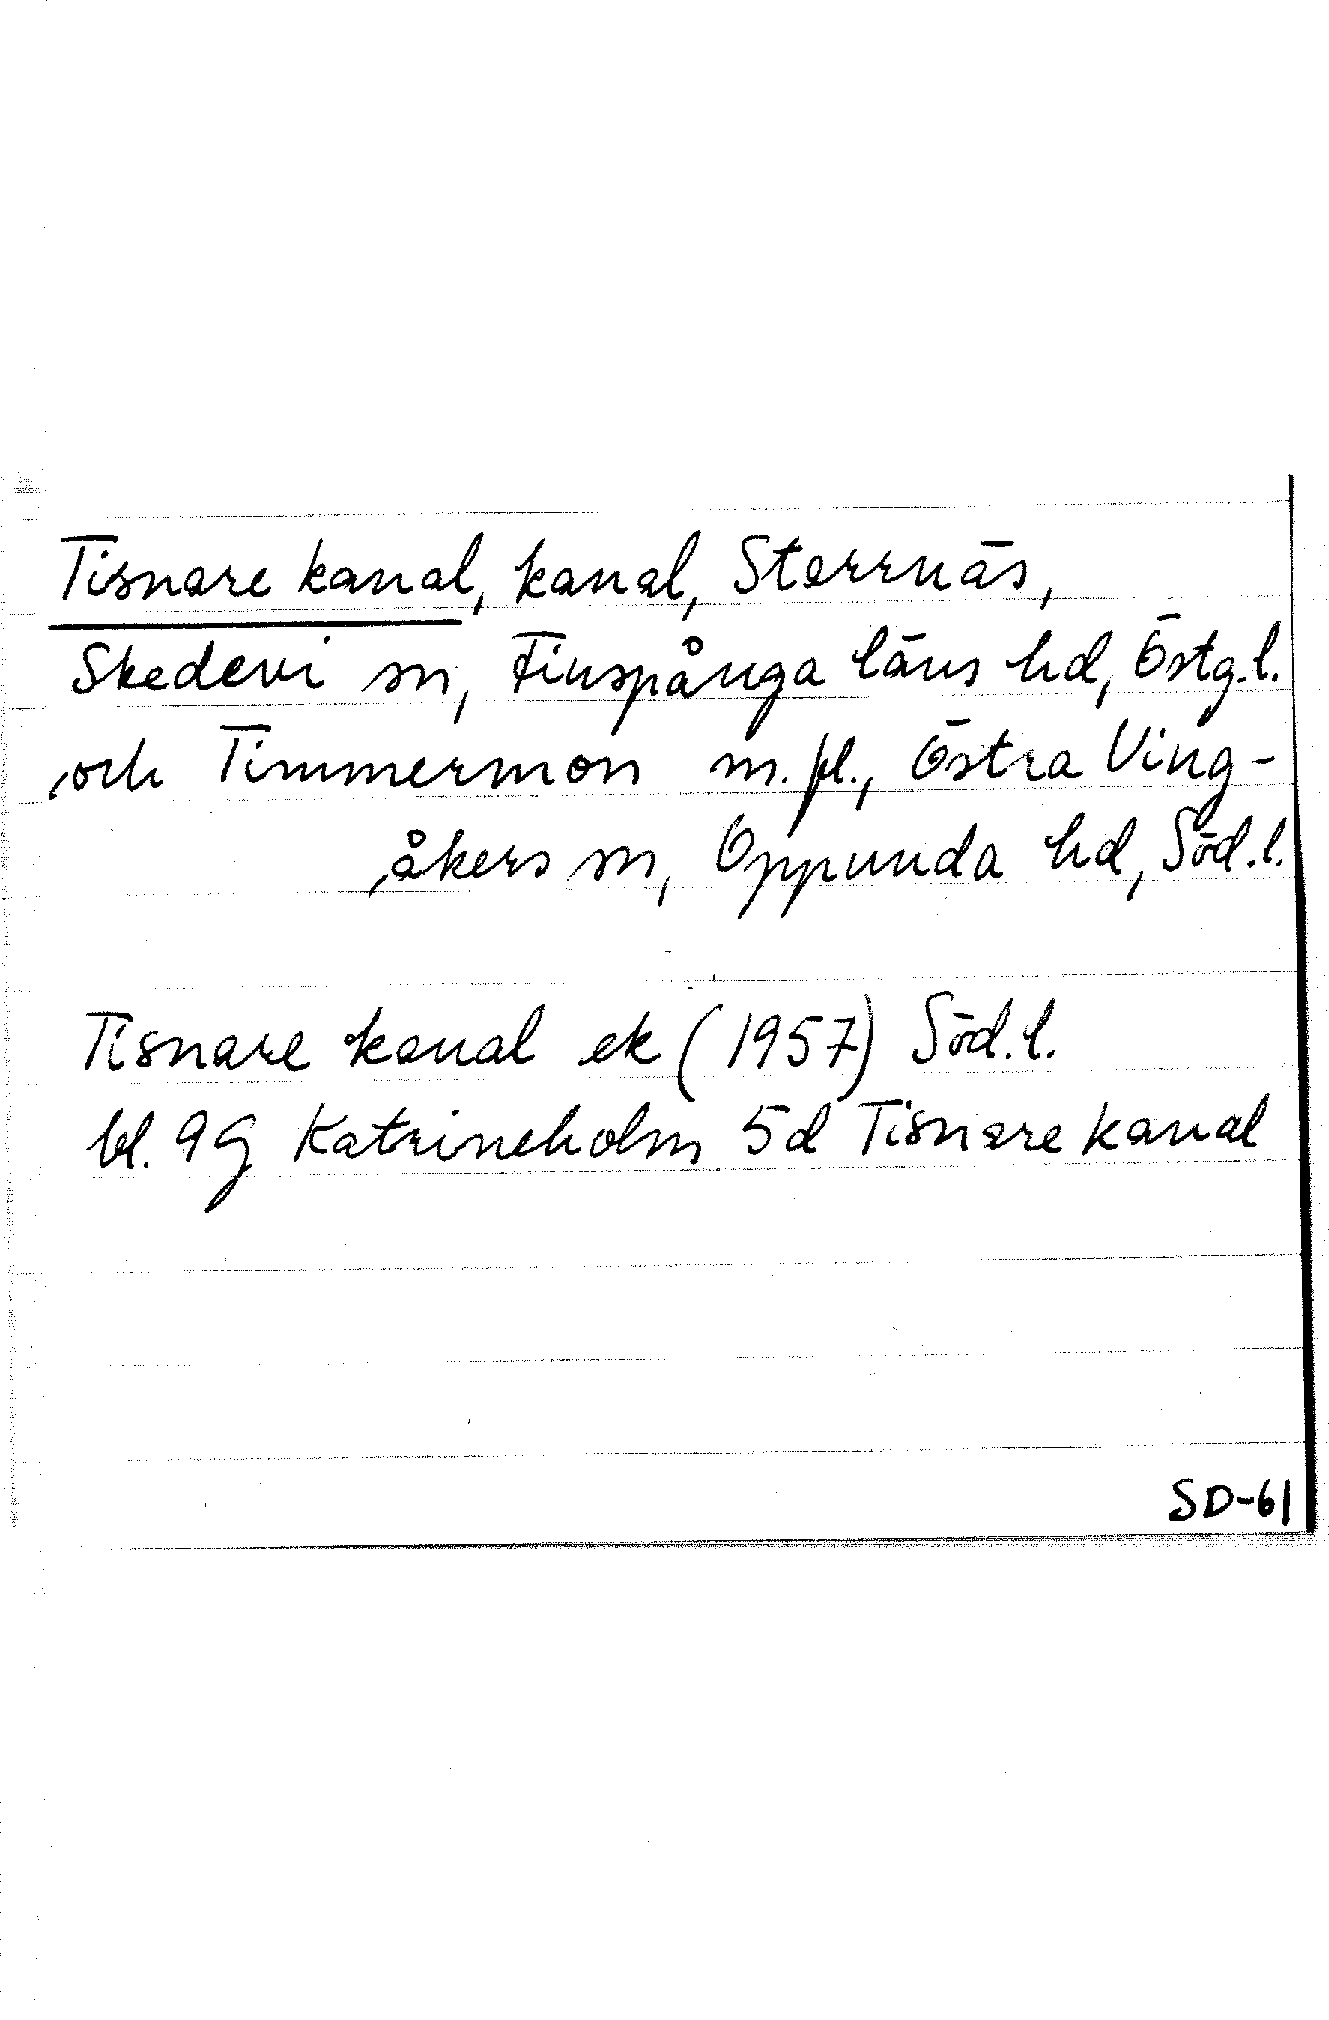 Tisnare kanal, kanal, Starrnäs,
Skedevi sn, Finspånga läns hd, Östg.l.
och Timmermon m.fl., Östra Ving-
åkers sn, Oppunda hd, Söd.l.
Tisnare kanal ek (1957) Söd.l.
bl. 9G Katrineholm 5d Tisnare kanal
SD-61